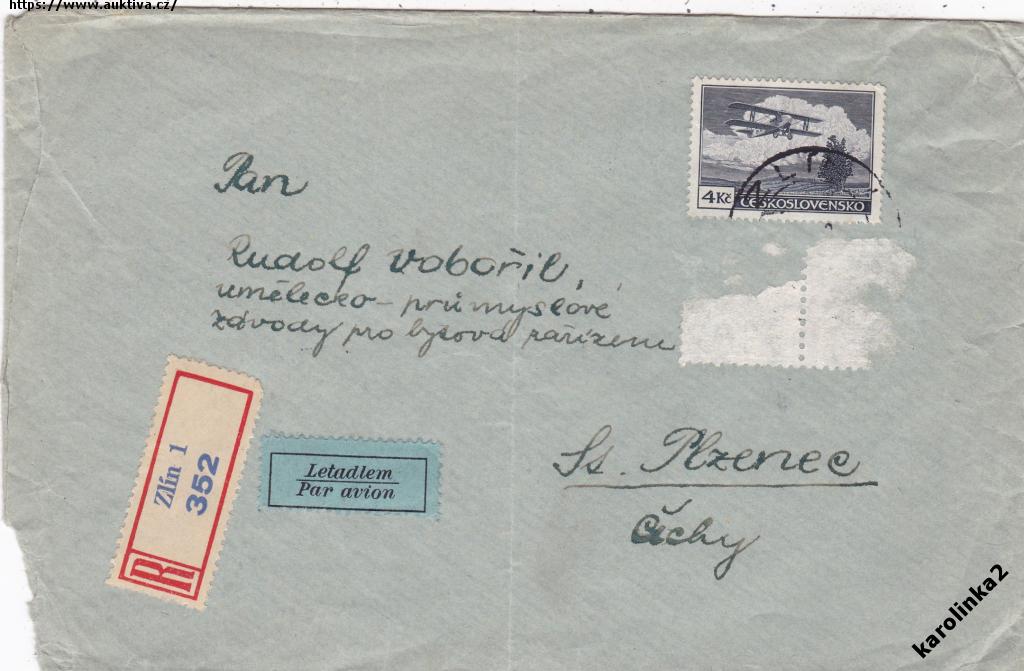 https://www.auktiva.cz/
4 Kč ČESKOSLOVENSKO
Pan
Rudolf Vobořil,
umělecko-průmyslové
závody pro bytová zařízení
Zlín 1
352
R
Letadlem
Par avion
St. Plzenec
Čechy
karolinka2